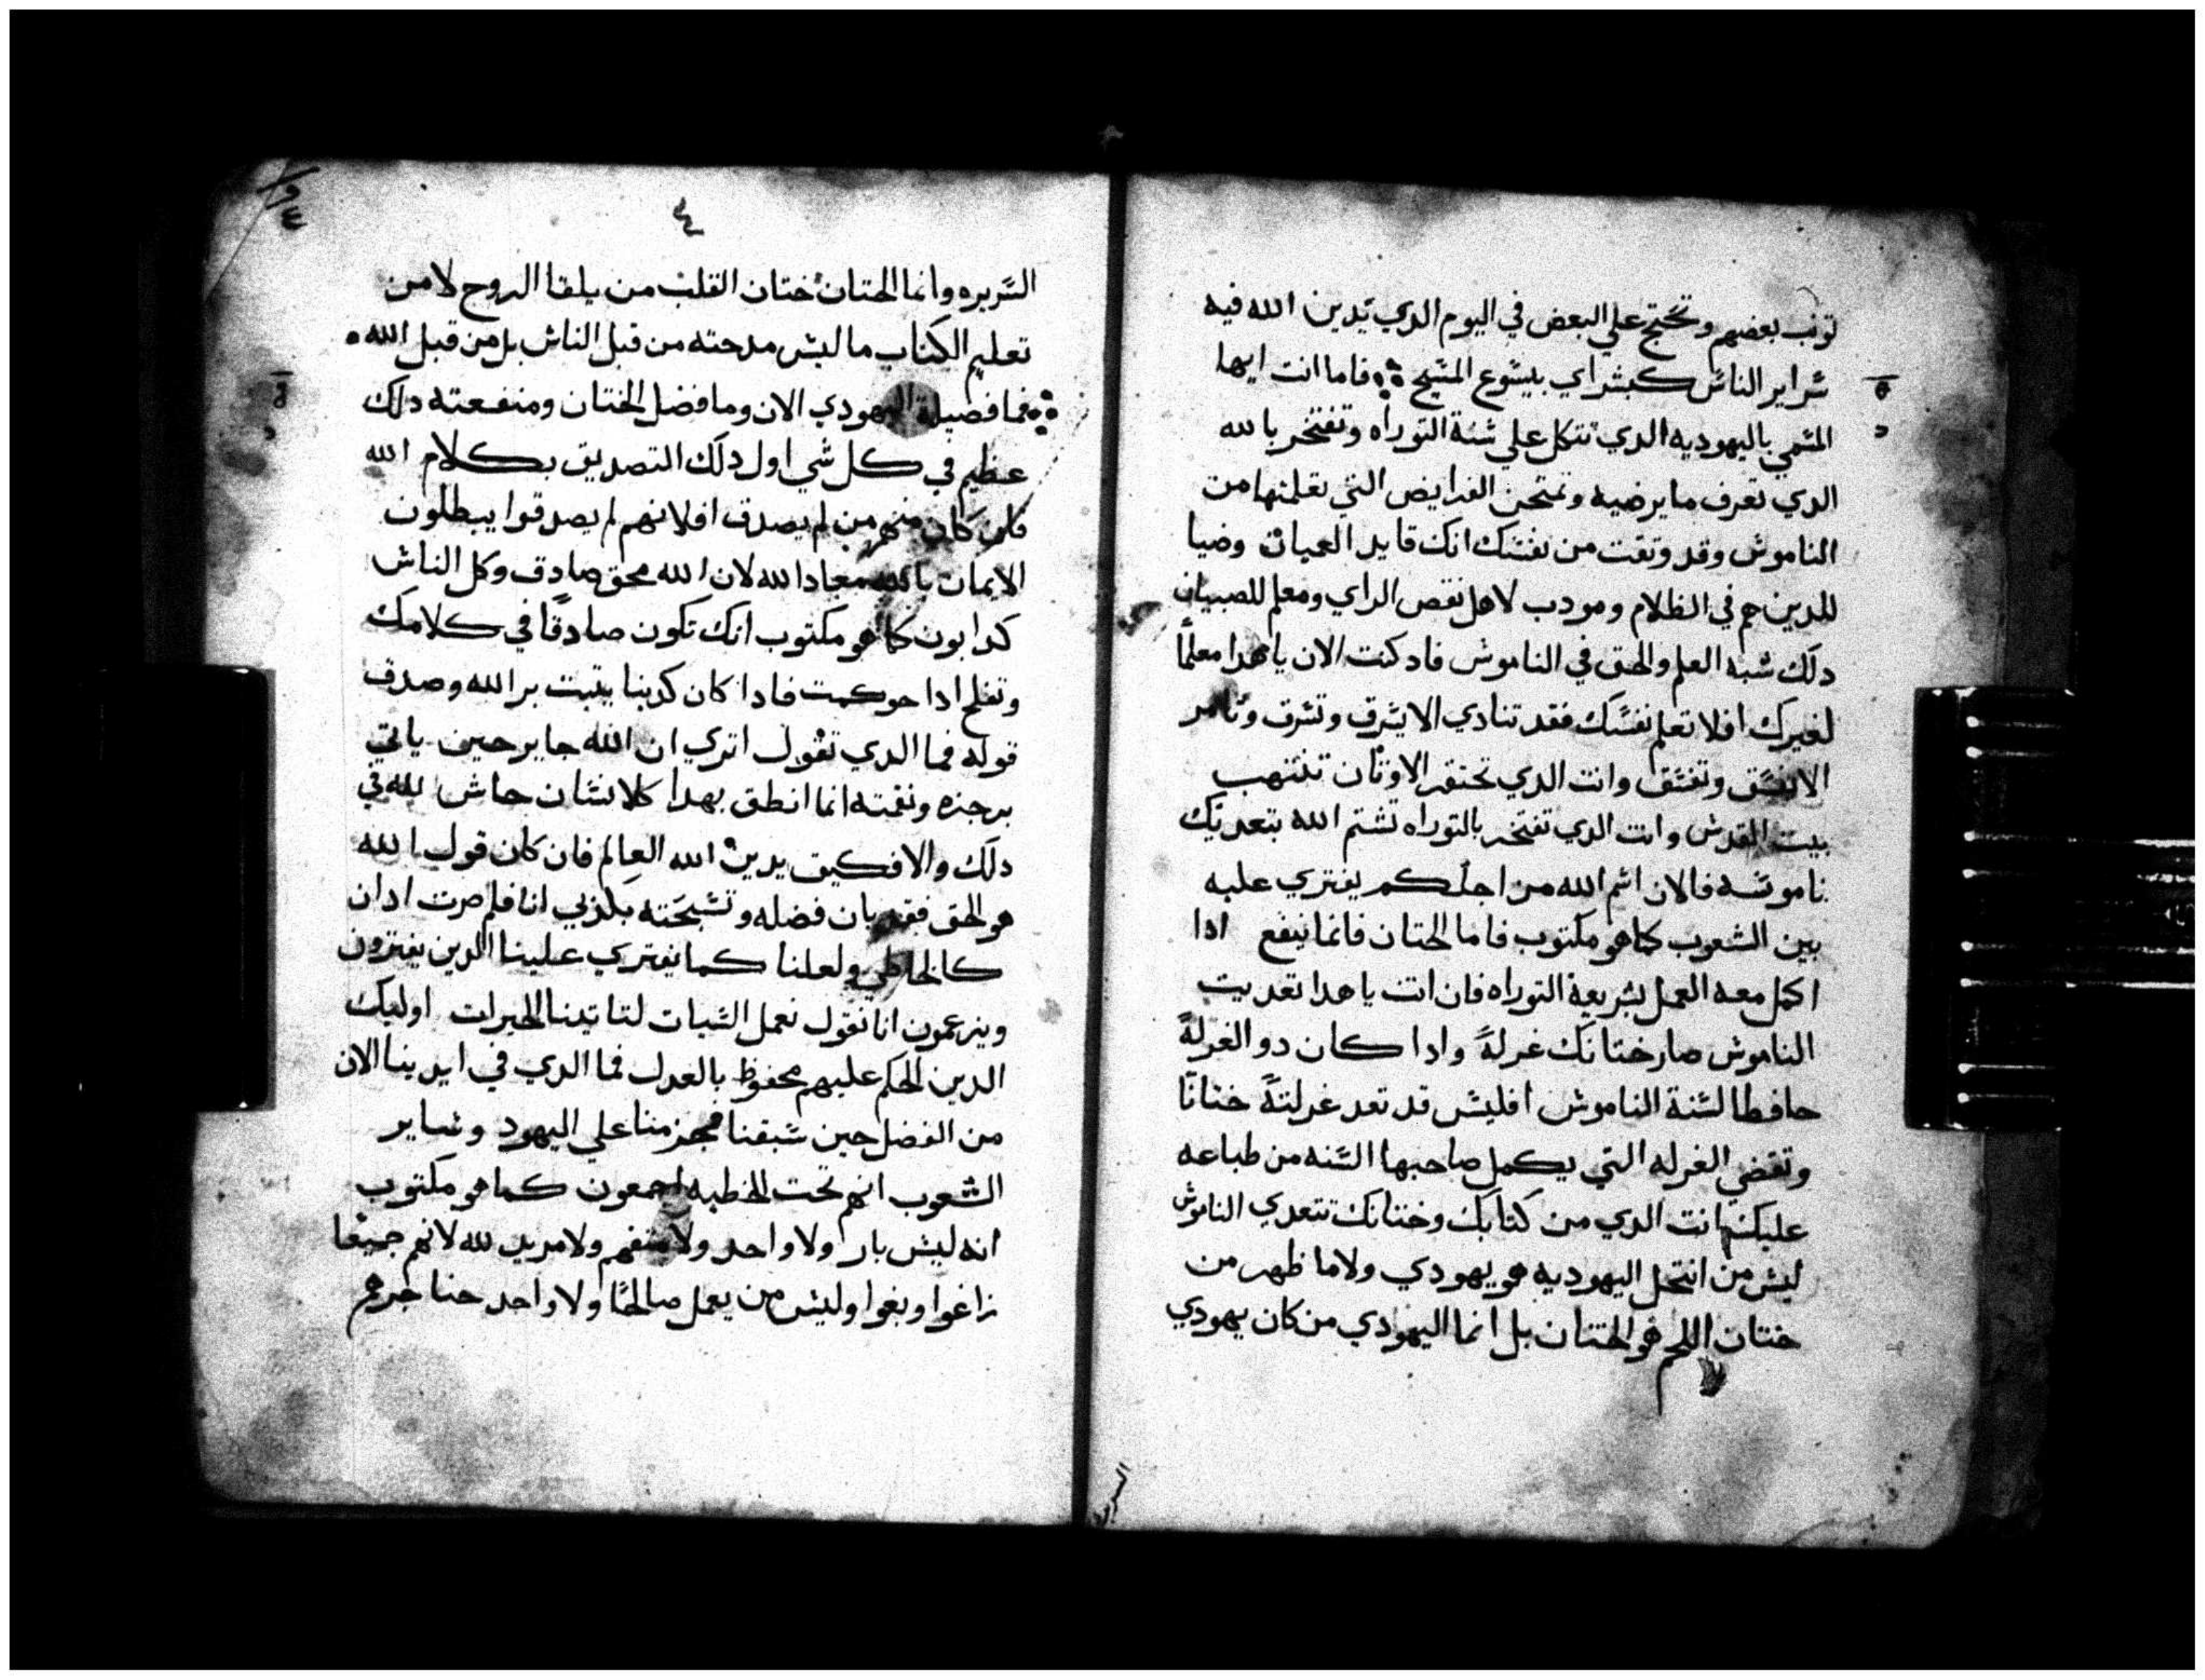 تونب بعضهم وتحتج علي البعض في اليوم الدي يدين الله فيه
شراير الناس كبشراي بيشوع المشيح فاما انت ايها
المشمي باليهوديه الدي تتكل علي شنة التوراه وتفتخر بالله
الدي تعرف ما يرضيه وتمتحن الفرايض التي تعلمتها من
الناموش وقد وتقت من نفشك انك قايد العميان وضيا
للدين هم في الظلام ومودب لاهل نقص الراي ومعلم للصبيان
دلك شبه العلم والحق في الناموش فاد كنت الان يا هدا معلمًا
لغيرك افلا تعلم نفشك فقد تنادي الا يشرق وتشرق وتامر
الا يفشق وتفشق وانت الدي تحتقر الاوتان تنتهب
بيت القدش وانت الدي تفتخر بالتوراه تشتم الله بتعديك
ناموشه فالان اشم الله من اجلكم يفتري عليه
بين الشعوب كما هو مكتوب فاما الختان فانما ينفع ادا
اكمل معه العمل بشريعة التوراه فان انت يا هدا تعديت
الناموش صار ختانك غرلةً وادا كان دو الغرلة
حافظا لشنة الناموش افليش قد تعد غرلتهً ختانًا
وتقضي الغرله التي يكمل صاحبها الشنه من طباعه
عليك انت الدي من كتابك وختانك تتعدي الناموش
ليش من انتحل اليهوديه هو يهودي ولا ما ظهر من
ختان اللحم هو الختان بل انما اليهودي من كان يهودي
٤
الشريره وانما الختان ختان القلب من يلقا الروح لا من
تعليم الكتاب ما ليش مدحته من قبل الناش بل من قبل الله
فما فضيلة اليهودي الان وما فضل الختان ومنفعته دلك
عظيم في كل شي اول دلك التصديق بكلام الله
فان كان منهم من لم يصدق افلانهم لم يصدقوا يبطلون
الايمان بالله معادا الله لان الله محق صادق وكل الناش
كدابون كما هو مكتوب انك تكون صادقًا في كلامك
وتفلح ادا حوكمت فادا كان كدبنا يتبت بر الله وصدق
قوله فما الدي تقول اتري ان الله جاير حين ياتي
برجزه ونقمته انما انطق بهدا كلانشان حاش لله في
دلك والا فكيف يدين الله العالم فان كان قول الله
هو الحق فقد بان فضله وتشبحته بكدبي انا فلم صرت ادان
كالخاطي ولعلنا كما يفتري علينا الدين يفترون
ويزعمون انا نقول نعمل الشيات لتاتينا الخيرات اوليك
الدين الحكم عليهم محفوظ بالعدل فما الدي في ايدينا الان
من الفضل حين شبقنا فجزمنا علي اليهود وشاير
الشعوب انهم تحت الخطيه اجمعون كما هو مكتوب
انه ليش بار ولا واحد ولا متفهم ولا مريد لله لانهم جميعًا
زاغوا وبغوا وليش من يعمل صالحًا ولا واحد حناجرهم